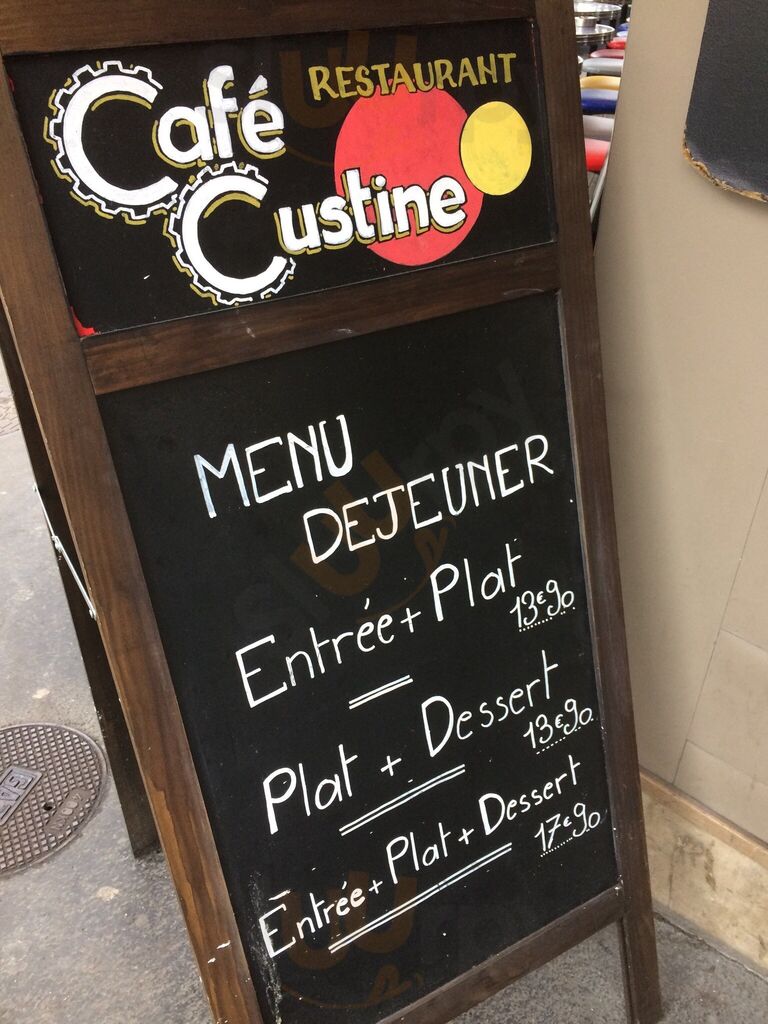 RESTAURANT
Café
Custine
MENU
DEJEUNER
Entrée + Plat
13€90
Plat + Dessert
13€90
Entrée + Plat + Dessert
17€90